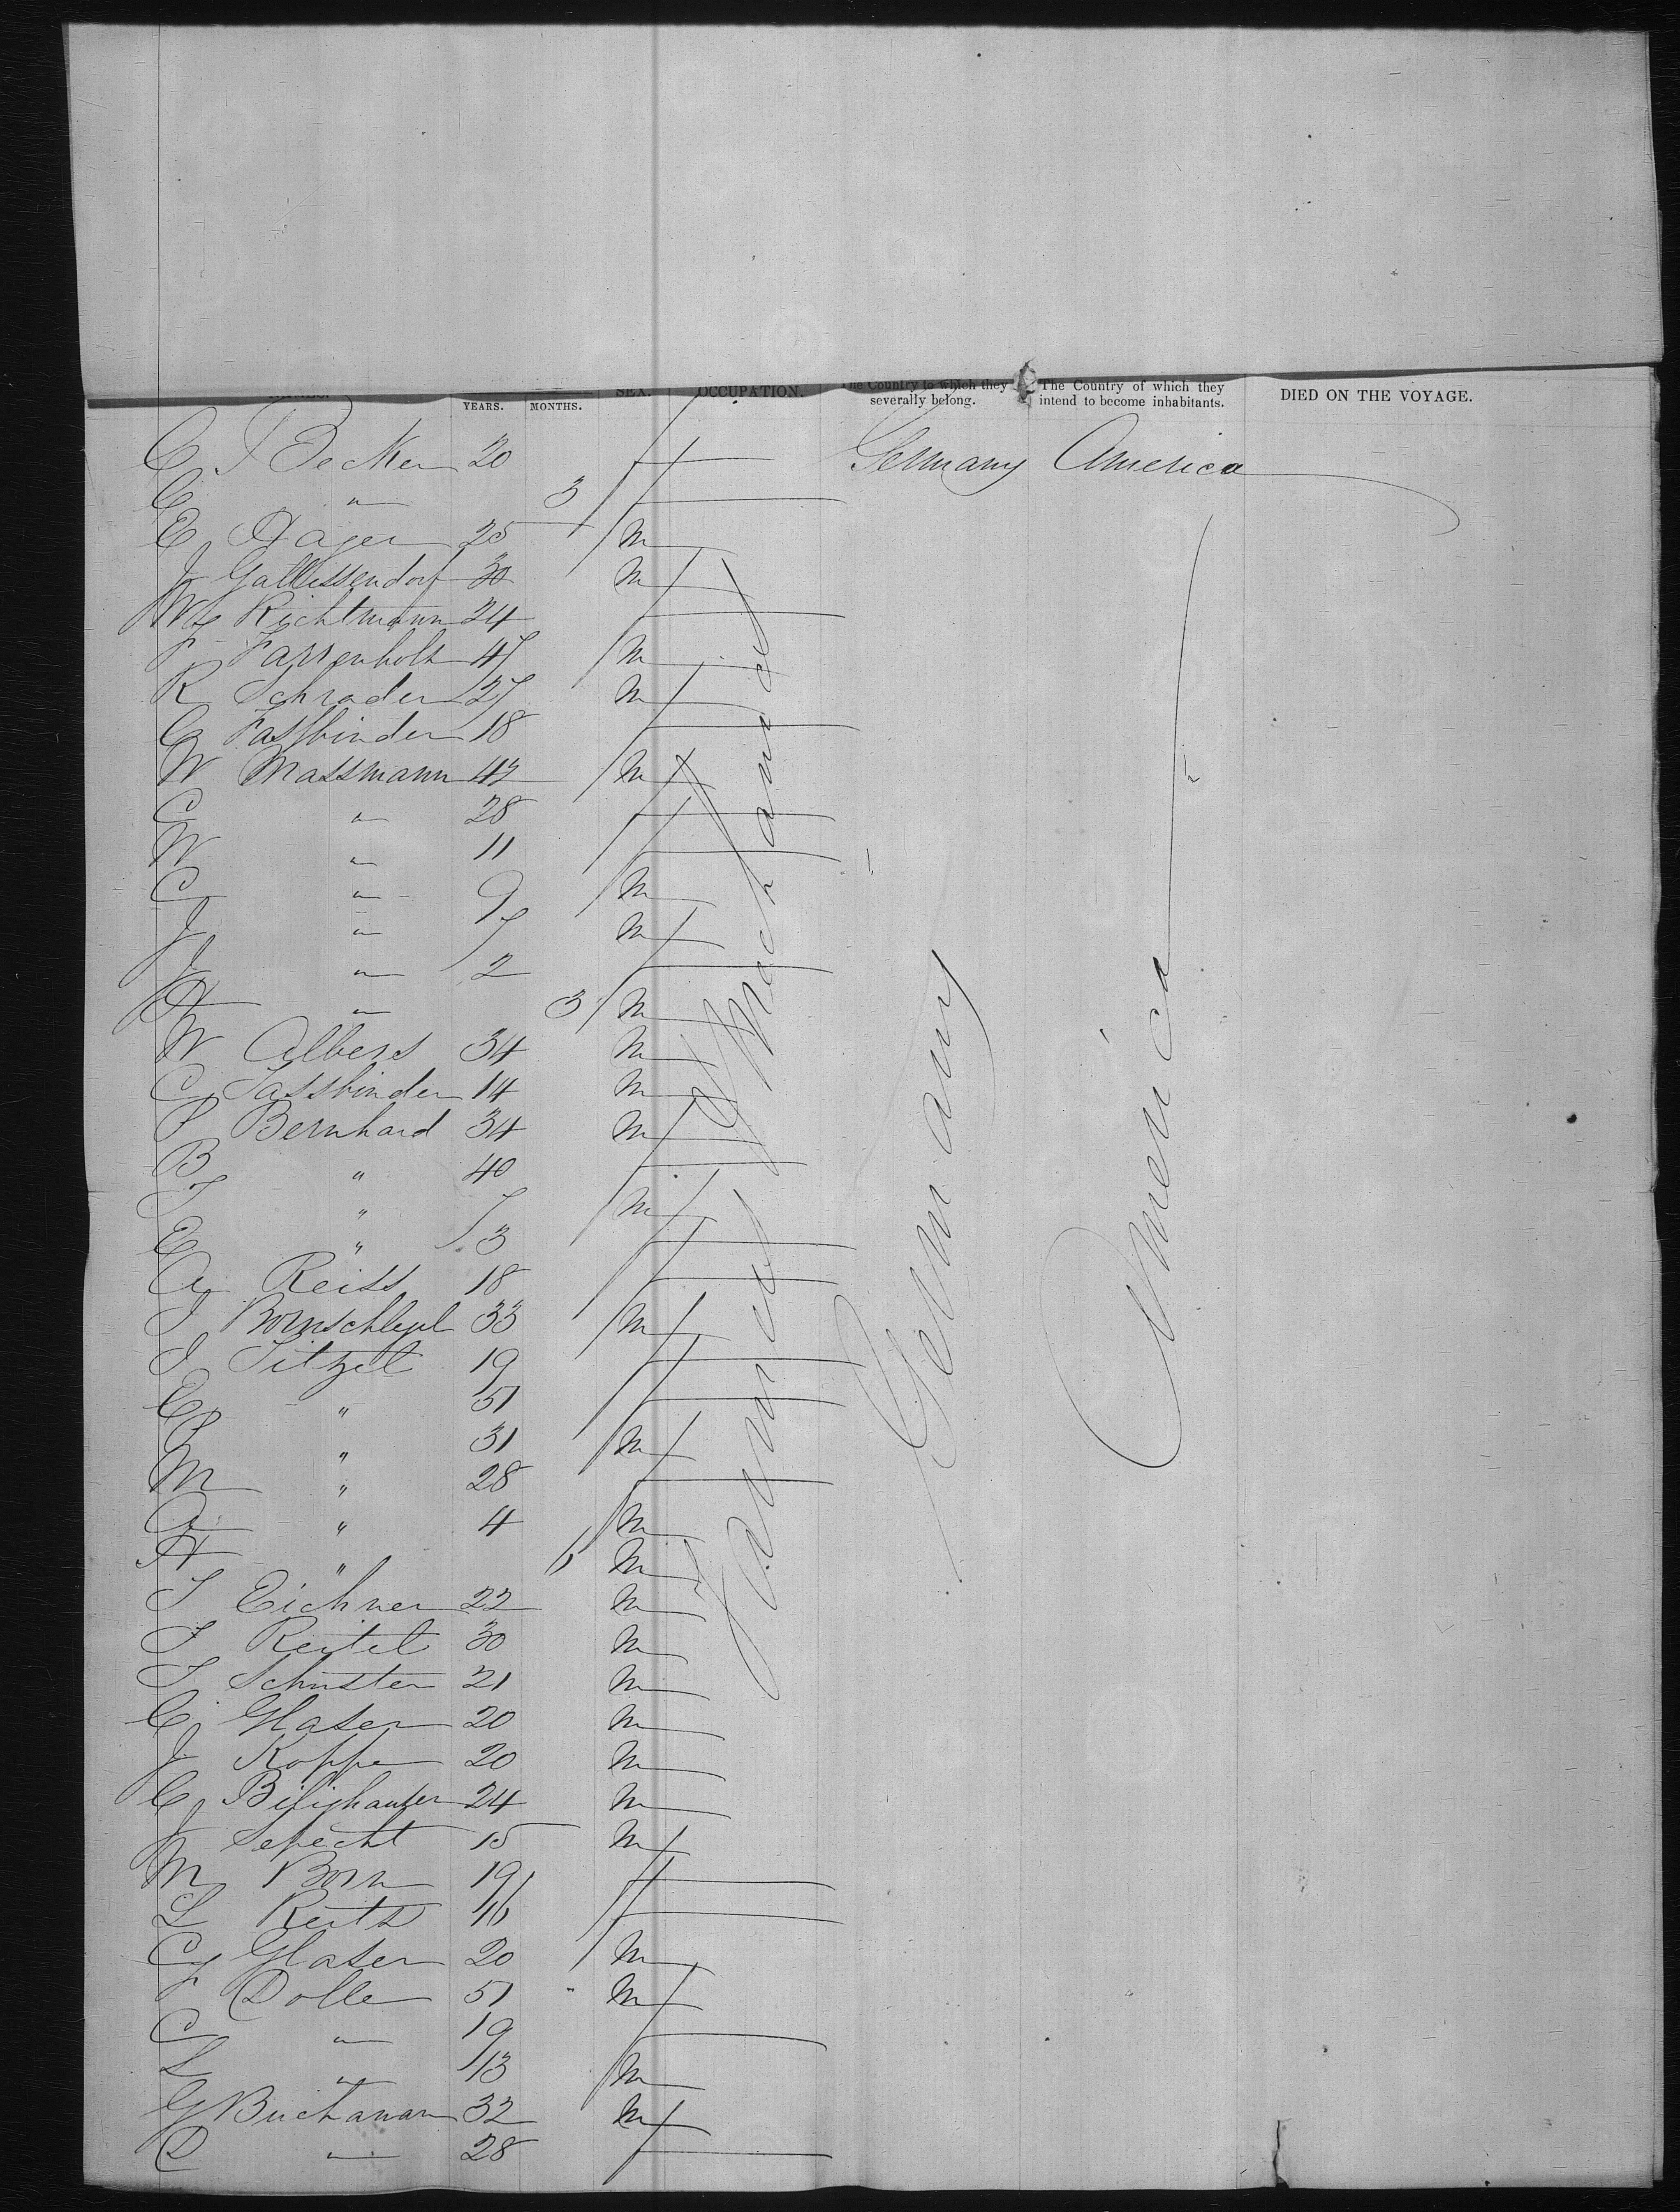 YEARS. MONTHS. SEX. OCCUPATION. The Country to which they severally belong. The Country of which they intend to become inhabitants. DIED ON THE VOYAGE.
C Becker 20 f Germany America
C " 3 f
E Hager 25 m
J Gallissendorf 30 m
W Richtmann 24 f
F Farrenholt 47 m
R Schrader 27 m
C Fassbinder 18 f
W Massmann 42 m
C " 28 f
W " 11 f
C " 9 m
J " 7 m
J " 2 f
H " 3 m
W Albers 34 m
C Fassbinder 14 m
P Bernhard 34 m
B " 40 f
J " 7 m
E " 3 f
A Reiss 18 f
J Bornschlegel 33 m
J Sitzel 19 f
C " 51 f
P " 31 m
M " 28 f
A " 4 m
H " 6 m
J Eichner 22 m
J Reitel 30 m
J Schuster 21 m
C Glaser 20 m
J Koppe 20 m
C Bilighauser 24 m
J Sepecht 15 m
M Born 19 f
L Reitz 16 f
C Glaser 20 m
F Dolle 51 m
C " 19 f
L " 13 m
G Buchanan 32 m
D " 28 f
Farmers & Mechanics
Germany
America